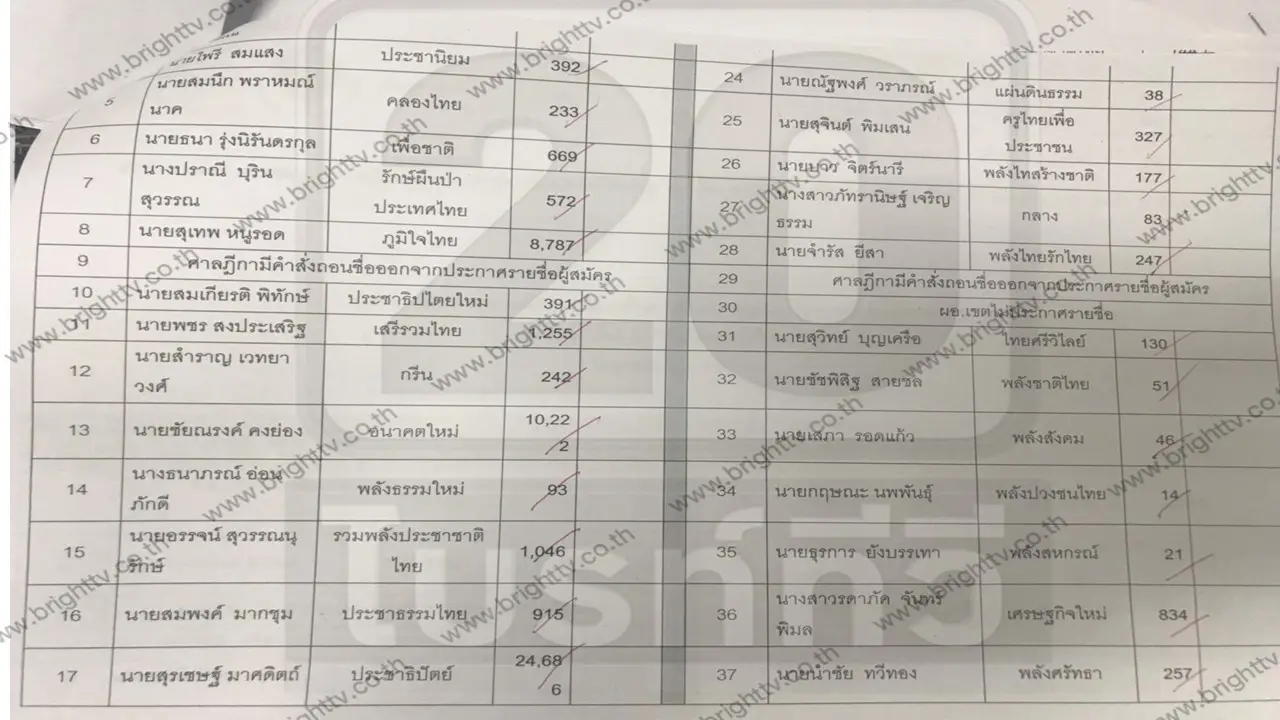 นายไพรี สมแสง ประชานิยม 392
5 นายสมนึก พราหมณ์ คลองไทย 233
นาค
6 นายธนา รุ่งนิรันดรกุล เพื่อชาติ 669
7 นางปราณี บุริน รักษ์ผืนป่า 572
สุวรรณ ประเทศไทย
8 นายสุเทพ หนูรอด ภูมิใจไทย 8,787
9 ศาลฎีกามีคำสั่งถอนชื่อออกจากประกาศรายชื่อผู้สมัคร
10 นายสมเกียรติ พิทักษ์ ประชาธิปไตยใหม่ 391
11 นายพชร สงประเสริฐ เสรีรวมไทย 1,255
12 นายสำราญ เวทยา กรีน 242
วงศ์
13 นายชัยณรงค์ คงย่อง อนาคตใหม่ 10,22
2
14 นางธนาภรณ์ อ่อน พลังธรรมใหม่ 93
ภักดี
15 นายอรรจน์ สุวรรณนุ รวมพลังประชาชาติ 1,046
รักษ์ ไทย
16 นายสมพงศ์ มากชุม ประชาธรรมไทย 915
17 นายสุรเชษฐ์ มาศดิตถ์ ประชาธิปัตย์ 24,68
6
24 นายณัฐพงศ์ วราภรณ์ แผ่นดินธรรม 38
25 นายสุจินต์ พิมเสน ครูไทยเพื่อ 327
ประชาชน
26 นายบวร จิตร์นารี พลังไทสร้างชาติ 177
27 นางสาวภัทรานิษฐ์ เจริญ กลาง 83
ธรรม
28 นายจำรัส ยีสา พลังไทยรักไทย 247
29 ศาลฎีกามีคำสั่งถอนชื่อออกจากประกาศรายชื่อผู้สมัคร
30 ผอ.เขตไม่ประกาศรายชื่อ
31 นายสุวิทย์ บุญเครือ ไทยศรีวิไลย์ 130
32 นายชัชพิสิฐ สายชล พลังชาติไทย 51
33 นายเสภา รอดแก้ว พลังสังคม 46
34 นายกฤษณะ นพพันธุ์ พลังปวงชนไทย 14
35 นายธุรการ ยังบรรเทา พลังสหกรณ์ 21
36 นางสาวรดาภัค จันทร์ เศรษฐกิจใหม่ 834
พิมล
37 นายนำชัย ทวีทอง พลังศรัทธา 257
20
ไบรท์ทีวี
www.brighttv.co.th